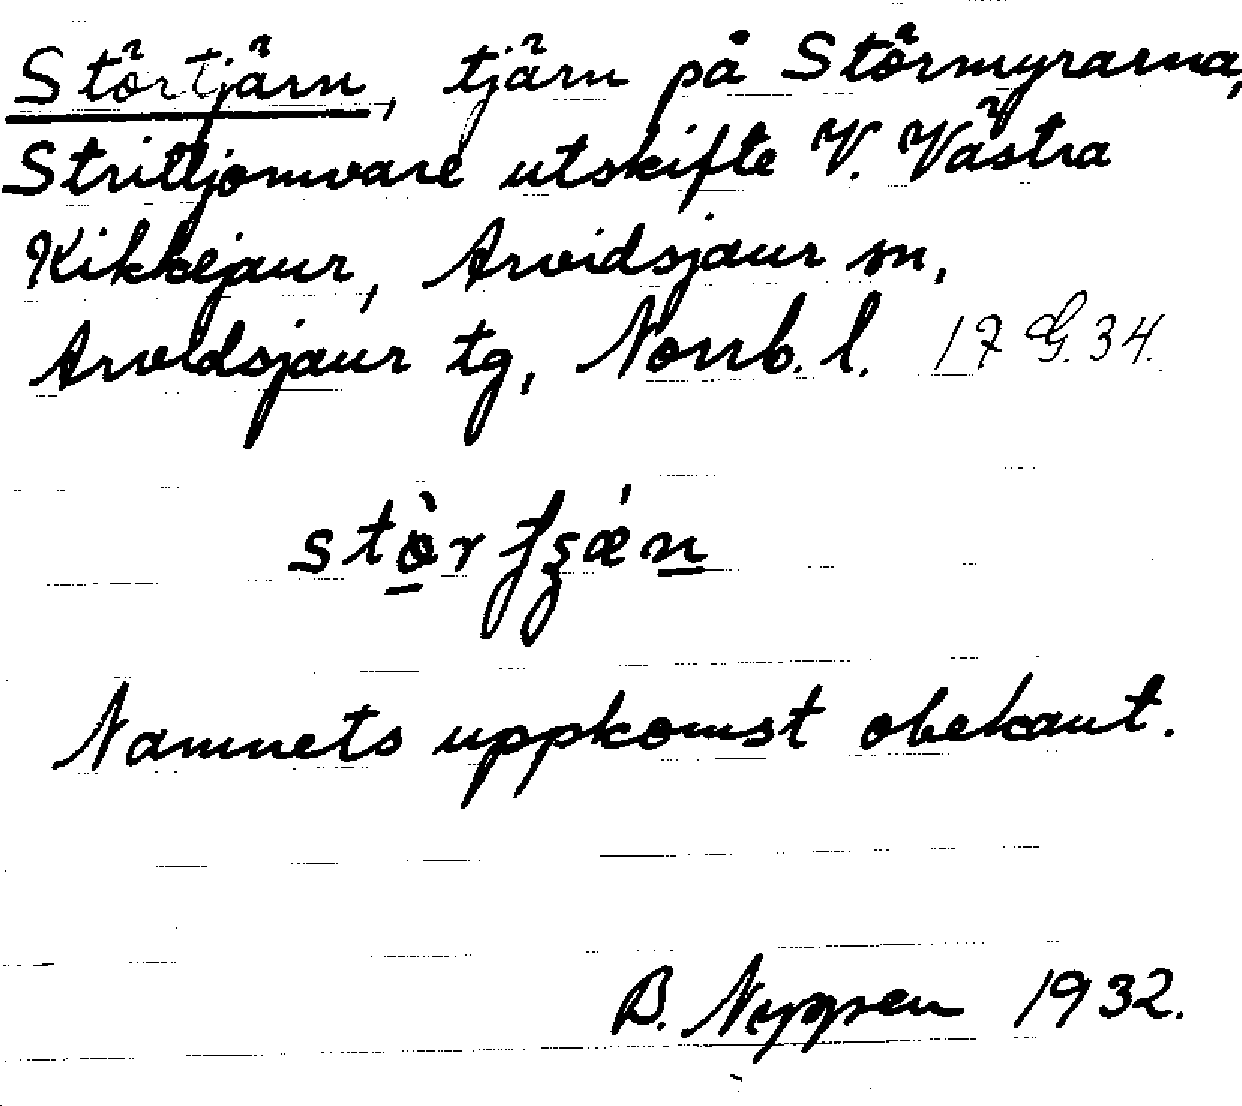 Störtjärn, tjärn på Störmyrarna,
Strittjomvare utskifte V. Västra
Kikkejaur, Arvidsjaur sn,
Arvidsjaur tg, Norrb. l. 17 G. 34.
Namnets uppkomst obekant.
B. Nygren 1932.